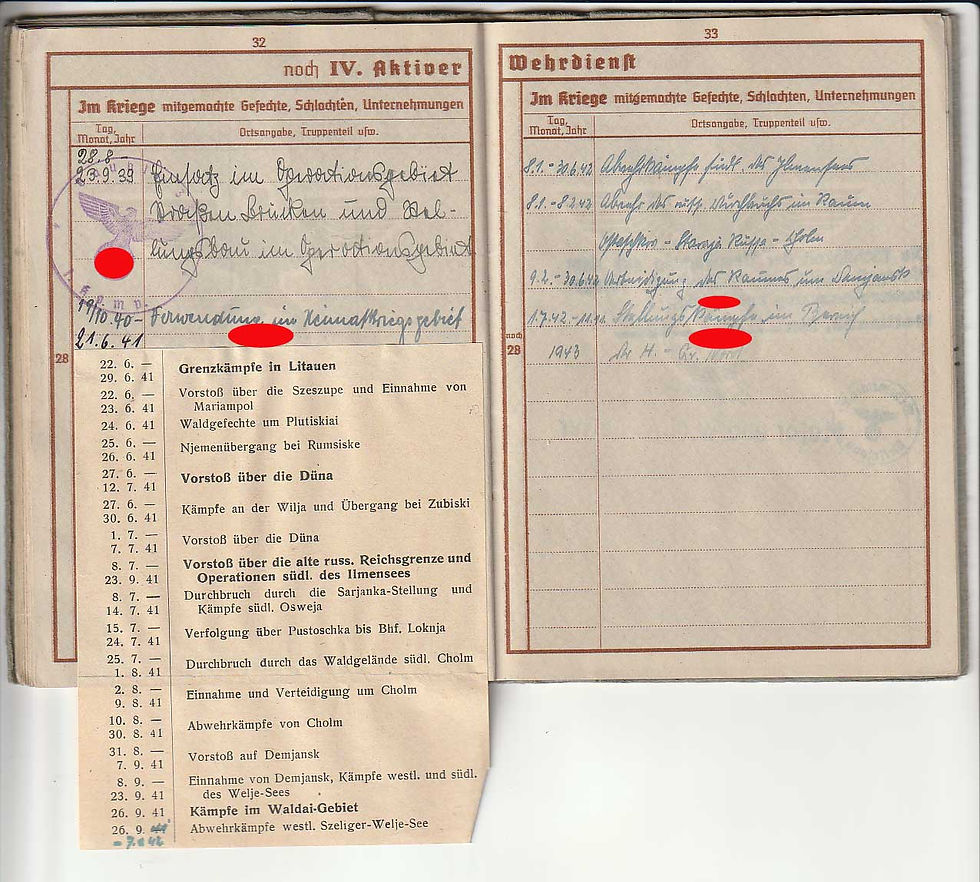 32
noch IV. Aktiver
Im Kriege mitgemachte Gefechte, Schlachten, Unternehmungen
Tag, Monat, Jahr
Ortsangabe, Truppenteil usw.
28.8 –
23.9.39 Einsatz im Operationsgebiet
Straßen Brücken und Stel-
lungsbau im Operationsgebiet
19/10.40 – Verwendung im Heimatkriegsgebiet
21.6.41
28
22. 6. —
29. 6. 41 Grenzkämpfe in Litauen
22. 6. — Vorstoß über die Szeszupe und Einnahme von
23. 6. 41 Mariampol
24. 6. 41 Waldgefechte um Plutiskiai
25. 6. —
26. 6. 41 Njemenübergang bei Rumsiske
27. 6. —
12. 7. 41 Vorstoß über die Düna
27. 6. —
30. 6. 41 Kämpfe an der Wilja und Übergang bei Zubiski
1. 7. —
7. 7. 41 Vorstoß über die Düna
8. 7. — Vorstoß über die alte russ. Reichsgrenze und
23. 9. 41 Operationen südl. des Ilmensees
8. 7. — Durchbruch durch die Sarjanka-Stellung und
14. 7. 41 Kämpfe südl. Osweja
15. 7. —
24. 7. 41 Verfolgung über Pustoschka bis Bhf. Loknja
25. 7. —
1. 8. 41 Durchbruch durch das Waldgelände südl. Cholm
2. 8. —
9. 8. 41 Einnahme und Verteidigung um Cholm
10. 8. —
30. 8. 41 Abwehrkämpfe von Cholm
31. 8. —
7. 9. 41 Vorstoß auf Demjansk
8. 9. — Einnahme von Demjansk, Kämpfe westl. und südl.
23. 9. 41 des Welje-Sees
26. 9. 41 Kämpfe im Waldai-Gebiet
26. 9. 41 Abwehrkämpfe westl. Szeliger-Welje-See
– 7.1.42
33
Wehrdienst
Im Kriege mitgemachte Gefechte, Schlachten, Unternehmungen
Tag, Monat, Jahr
Ortsangabe, Truppenteil usw.
8.1. – 30.6.42 Abwehrkämpfe südl. des Ilmensees
8.1. – 8.2.42 Abwehr des russ. Durchbruchs im Raum
Ostaschkow – Staraja Russa – Cholm
9.2. – 30.6.42 Verteidigung des Raumes um Demjansk
1.7.42 – Stellungskämpfe im Bereich
noch
28
1943